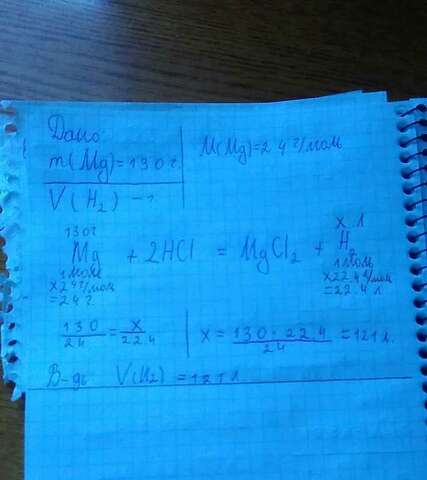 Дано:
m(Mg)=130г.
M(Mg)=24г/моль
V(H2) - ?
130г
x л
Mg + 2HCl = MgCl2 + H2
1 моль
x24г/моль
=24г.
1 моль
x22.4л/моль
=22.4 л
130/24 = x/22.4
x = 130·22.4/24 = 121л.
В-дь V(H2) = 121л.